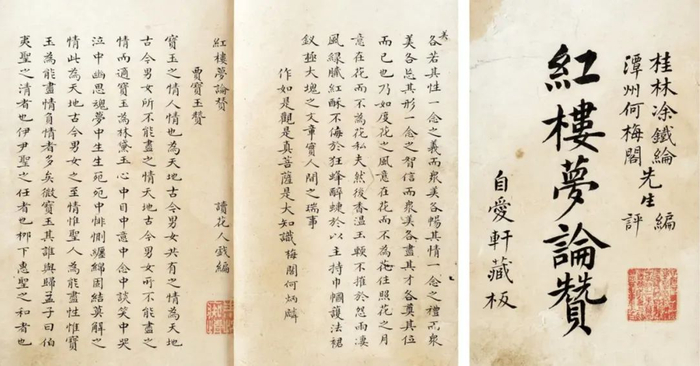 桂林凃鐵綸先生編
潭州何梅閣先生評
紅樓夢論贊
自愛軒藏板
美
各若其性一念之義而眾美各暢其情一念之禮而眾
美各忘其形一念之智信而眾美各盡其才各奠其位
而已也乃如度花之風意在花而不為花住照花之月
意在花而不為花私夫然後香溫玉軟不摧於怨雨凄
風綠膩紅酥不侮於狂蜂醉蝶於以主持巾幗護法裙
釵極大塊之文章實人間之瑞事
作如是觀是真菩薩是大知識 梅閣何炳麟
紅樓夢論贊
賈寶玉贊 讀花人戲編
寶玉之情人情也為天地古今男女共有之情為天地
古今男女所不能盡之情天地古今男女所不能盡之
情而適寶玉為林黛玉心中目中意中念中談笑中哭
泣中幽思魂夢中生生死死中悱惻纏綿固結莫解之
情此為天地古今男女之至情惟聖人為能盡性惟寶
玉為能盡情負情者多矣微寶玉其誰與歸孟子曰伯
夷聖之清者也伊尹聖之任者也柳下惠聖之和者也